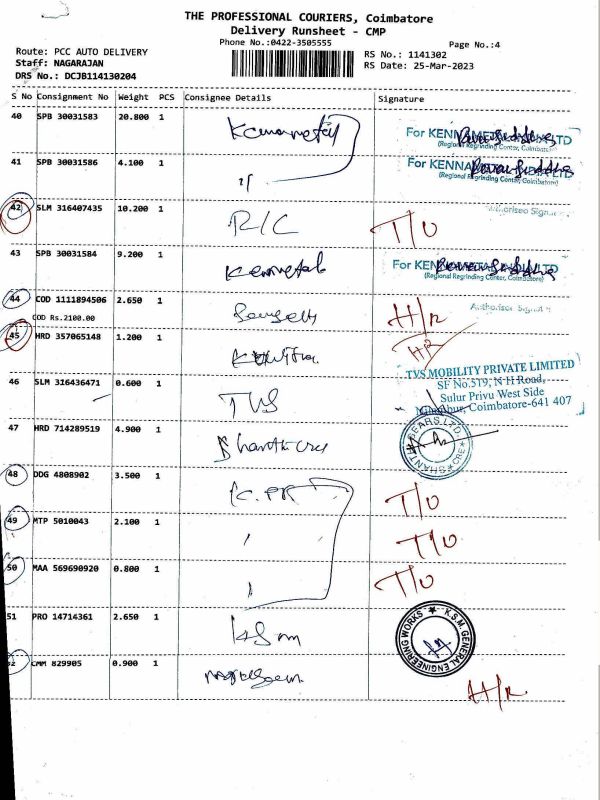 THE PROFESSIONAL COURIERS, Coimbatore
Delivery Runsheet - CMP
Phone No.:0422-3505555
Page No.:4
Route: PCC AUTO DELIVERY
Staff: NAGARAJAN
DRS No.: DCJB114130204
RS No.: 1141302
RS Date: 25-Mar-2023
S No Consignment No Weight PCS Consignee Details Signature
40 SPB 30031583 20.800 1
For KENNAMETAL INDIA LTD
(Regional Regrinding Center, Coimbatore)
41 SPB 30031586 4.100 1
For KENNAMETAL INDIA LTD
(Regional Regrinding Center, Coimbatore)
42 SLM 316407435 10.200 1 R/C T/O
Authorised Signatory
43 SPB 30031584 9.200 1
For KENNAMETAL INDIA LTD
(Regional Regrinding Center, Coimbatore)
44 COD 1111894506 2.650 1 H/R
Authorised Signatory
COD Rs.2100.00
45 HRD 357065148 1.200 1 HR
46 SLM 316436471 0.600 1 TVS
TVS MOBILITY PRIVATE LIMITED
SF No.519, N H Road,
Sulur Privu West Side
Coimbatore-641 407
47 HRD 714289519 4.900 1
SHANTHI GEARS LTD. CRE
48 DDG 4808902 3.500 1 K.PR T/O
49 MTP 5010043 2.100 1 T/O
50 MAA 569690920 0.800 1 T/O
51 PRO 14714361 2.650 1 KSM
K.S.M. GENERAL ENGINEERING WORKS
52 CMM 829905 0.900 1 H/R